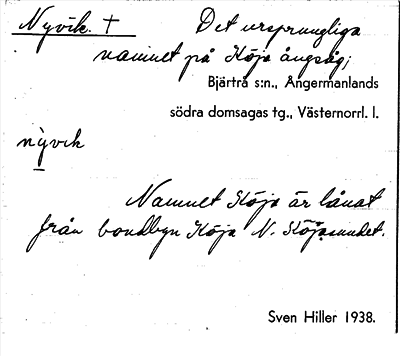 Nyvik. † Det ursprungliga
namnet på Köja ångsåg;
Bjärtrå s:n., Ångermanlands
södra domsagas tg., Västernorrl. l.
nỳvik
Namnet Köja är lånat
från bondbyn Köja N. Köjasundet.
Sven Hiller 1938.